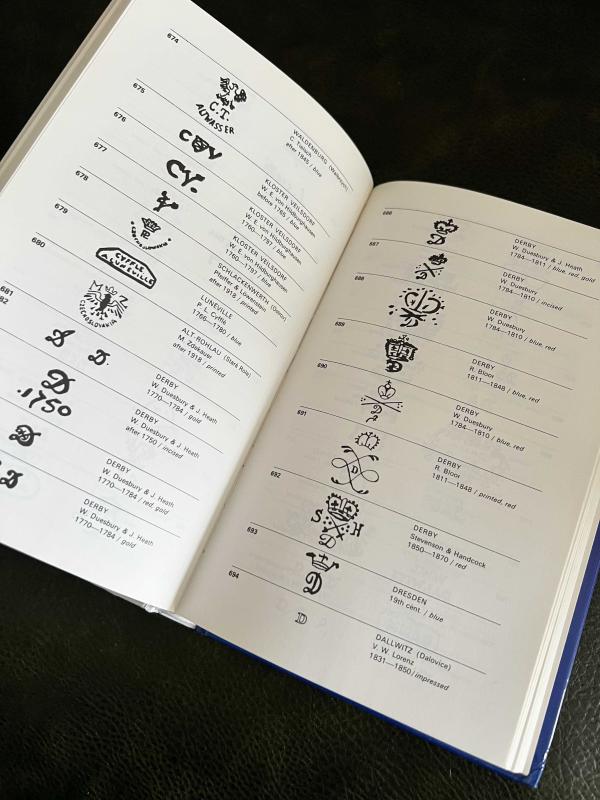 674
C.T.
AUWASSER
WALDENBURG (Wałbrzych)
C. Tielsch
after 1845 / blue
675
C V
KLOSTER VEILSDORF
W. E. von Hildburghausen
before 1765 / blue
676
CV
KLOSTER VEILSDORF
W. E. von Hildburghausen
1760—1797 / blue
677
KLOSTER VEILSDORF
W. E. von Hildburghausen
1760—1797 / blue
678
SCHLACKENWERTH (Ostrov)
Pfeiffer & Löwenstein
after 1918 / printed
679
CYFFLE
A LUNEVILLE
LUNEVILLE
P. L. Cyfflé
1766—1780 / blue
680
M Z
CZECHOSLOVAKIA
ALT-ROHLAU (Stará Role)
M. Zdekauer
after 1918 / printed
681
D D
DERBY
W. Duesbury & J. Heath
1770—1784 / gold
682
D
1750
DERBY
W. Duesbury & J. Heath
after 1750 / incised
DERBY
W. Duesbury & J. Heath
1770—1784 / red, gold
DERBY
W. Duesbury & J. Heath
1770—1784 / red, gold
686
D
DERBY
W. Duesbury & J. Heath
1784—1811 / blue, red, gold
687
DERBY
W. Duesbury
1784—1810 / incised
688
DERBY
W. Duesbury
1784—1810 / blue, red
689
DERBY
R. Bloor
1811—1848 / blue, red
690
DERBY
W. Duesbury
1784—1810 / blue, red
691
D
DERBY
R. Bloor
1811—1848 / printed, red
692
S H
D
DERBY
Stevenson & Handcock
1850—1870 / red
693
D
DRESDEN
19th cent. / blue
694
D
DALLWITZ (Dalovice)
V. W. Lorenz
1831—1850 / impressed